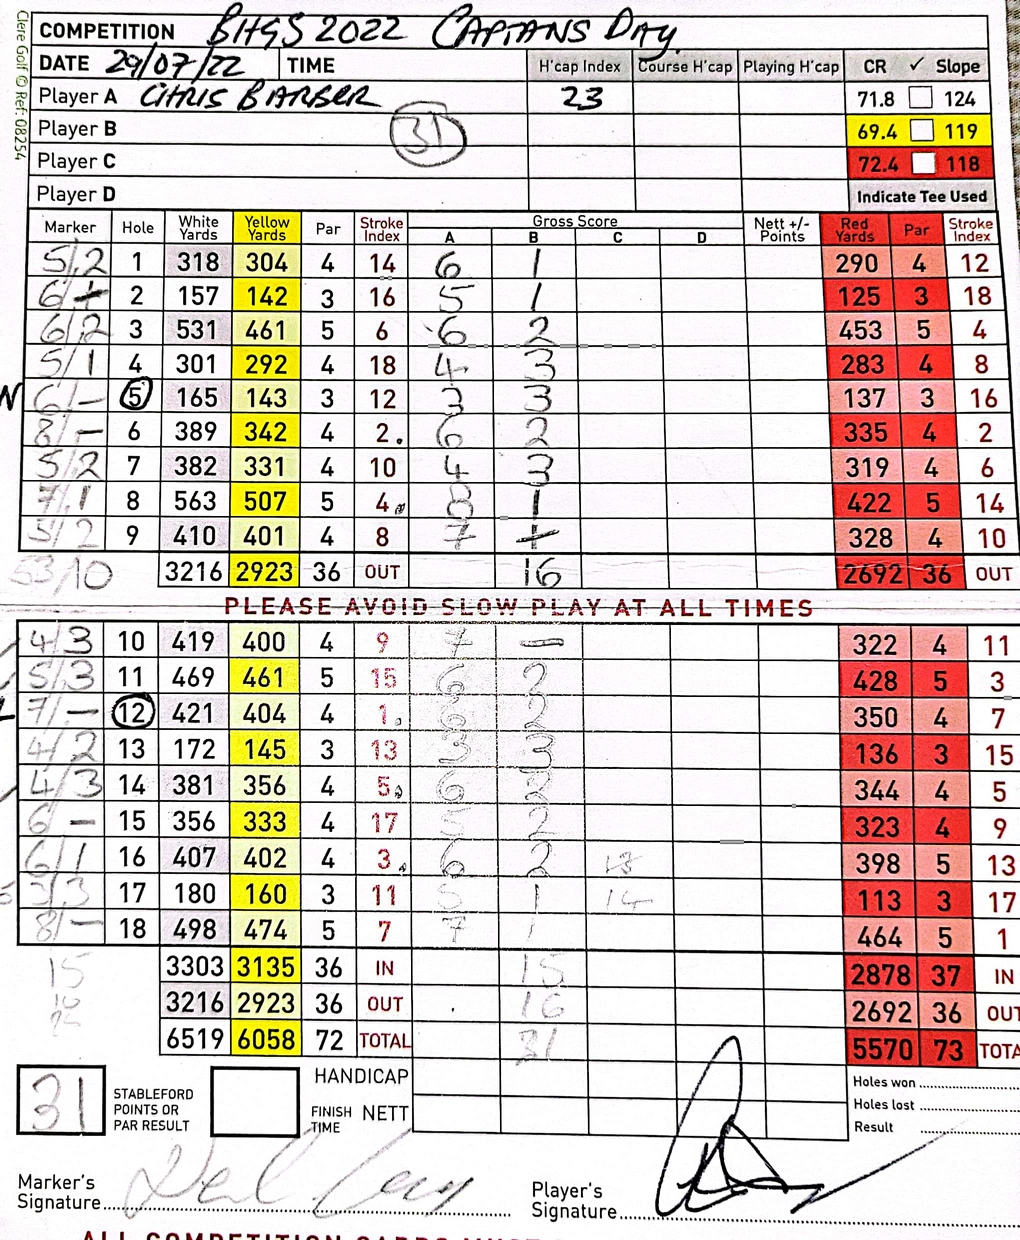 Clere Golf © Ref: 08254
COMPETITION BHGS 2022 CAPTANS DAY
DATE 29/07/22 TIME H'cap Index Course H'cap Playing H'cap CR ✓ Slope
Player A CHRIS BARBER 23 71.8 124
Player B 31 69.4 119
Player C 72.4 118
Player D Indicate Tee Used
Marker Hole White Yards Yellow Yards Par Stroke Index Gross Score A B C D Nett +/- Points Red Yards Par Stroke Index
5/2 1 318 304 4 14 6 1 290 4 12
6/+ 2 157 142 3 16 5 1 125 3 18
6/2 3 531 461 5 6 6 2 453 5 4
5/1 4 301 292 4 18 4 3 283 4 8
N 6/- 5 165 143 3 12 3 3 137 3 16
8/- 6 389 342 4 2. 6 2 335 4 2
5/2 7 382 331 4 10 4 3 319 4 6
7/1 8 563 507 5 4 8 1 422 5 14
5/2 9 410 401 4 8 7 + 328 4 10
53/10 3216 2923 36 OUT 16 2692 36 OUT
PLEASE AVOID SLOW PLAY AT ALL TIMES
4/3 10 419 400 4 9 7 — 322 4 11
5/3 11 469 461 5 15 6 2 428 5 3
7/— 12 421 404 4 1. 6 2 350 4 7
4/2 13 172 145 3 13 3 3 136 3 15
4/3 14 381 356 4 5 6 2 344 4 5
6 - 15 356 333 4 17 5 2 323 4 9
6/1 16 407 402 4 3. 6 2 13 398 5 13
3/3 17 180 160 3 11 5 1 14 113 3 17
8/— 18 498 474 5 7 7 1 464 5 1
15 3303 3135 36 IN 15 2878 37 IN
3216 2923 36 OUT 16 2692 36 OUT
6519 6058 72 TOTAL 31 5570 73 TOTA
31 STABLEFORD POINTS OR PAR RESULT FINISH TIME HANDICAP NETT
Holes won
Holes lost
Result
Marker's Signature
Player's Signature